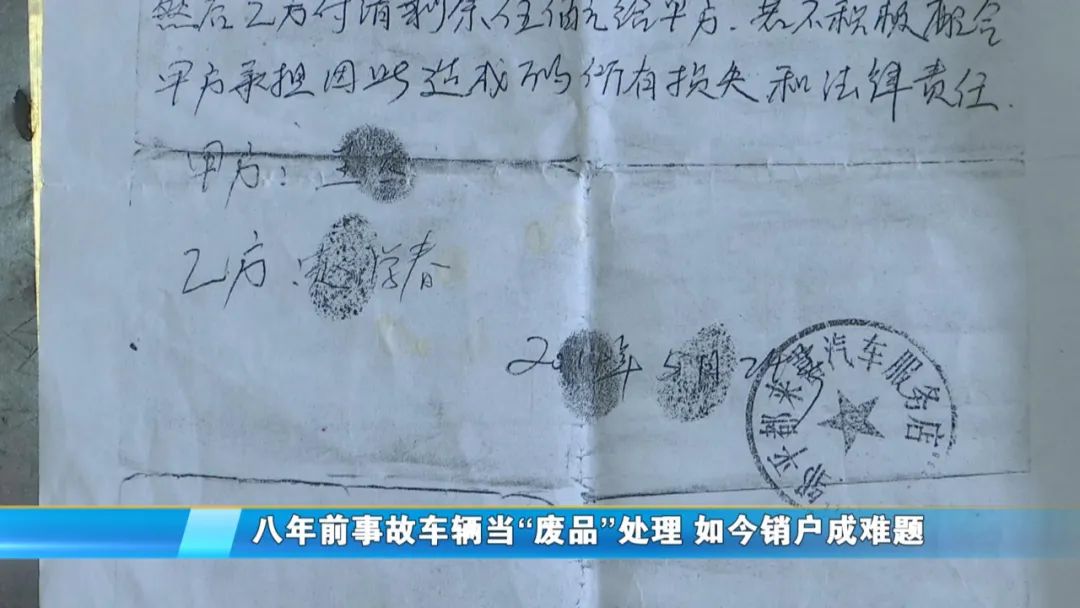 然后乙方付清剩余伍佰元给甲方.若不积极配合
甲方承担因此造成的所有损失和法律责任.
甲方:王
乙方:赵学春
20 年5月24
邹平郎来 汽车服务店
八年前事故车辆当“废品”处理 如今销户成难题